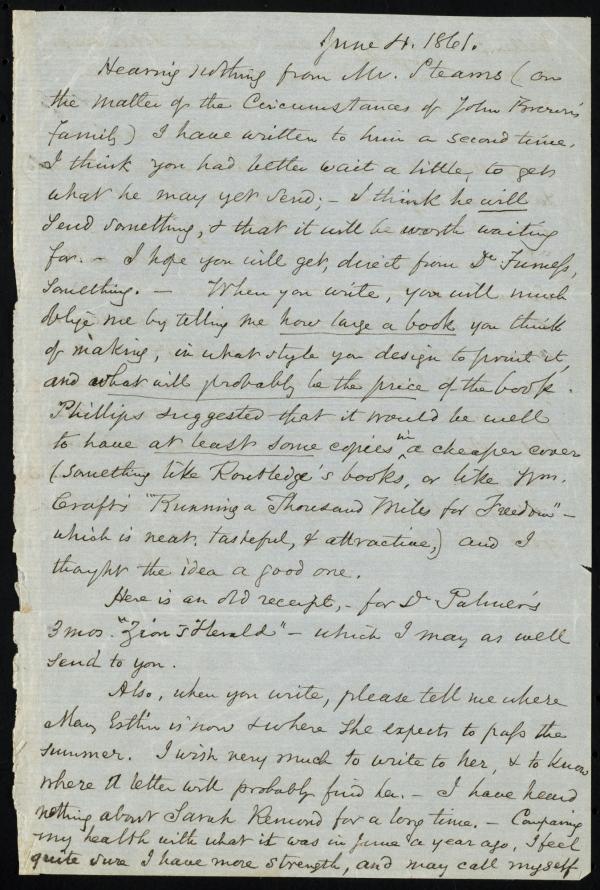 June 4. 1861.
Hearing nothing from Mr. Stearns (on
the matter of the Circumstances of John Brown's
family) I have written to him a second time.
I think you had better wait a little, to get
what he may yet send; - I think he will
send something, & that it will be worth waiting
for. - I hope you will get, direct from Dr Furness,
something. - When you write, you will much
oblige me by telling me how large a book you think
of making; in what style you design to print it,
and what will probably be the price of the book.
Phillips suggested that it would be well
to have at least some copies in a cheaper cover
(something like Routledge's books, or like Wm.
Craft's "Running a Thousand Miles for Freedom" -
which is neat, tasteful, & attractive,) and I
thought the idea a good one.
Here is an old receipt, - for Dr Palmer's
3 mos. "Zion's Herald" - which I may as well
send to you.
Also, when you write, please tell me where
Mary Estlin is now & where she expects to pass the
summer. I wish very much to write to her, & to know
where a letter will probably find her. - I have heard
nothing about Sarah Remond for a long time. - Comparing
my health with what it was in June a year ago, I feel
quite sure I have more strength, and may call myself